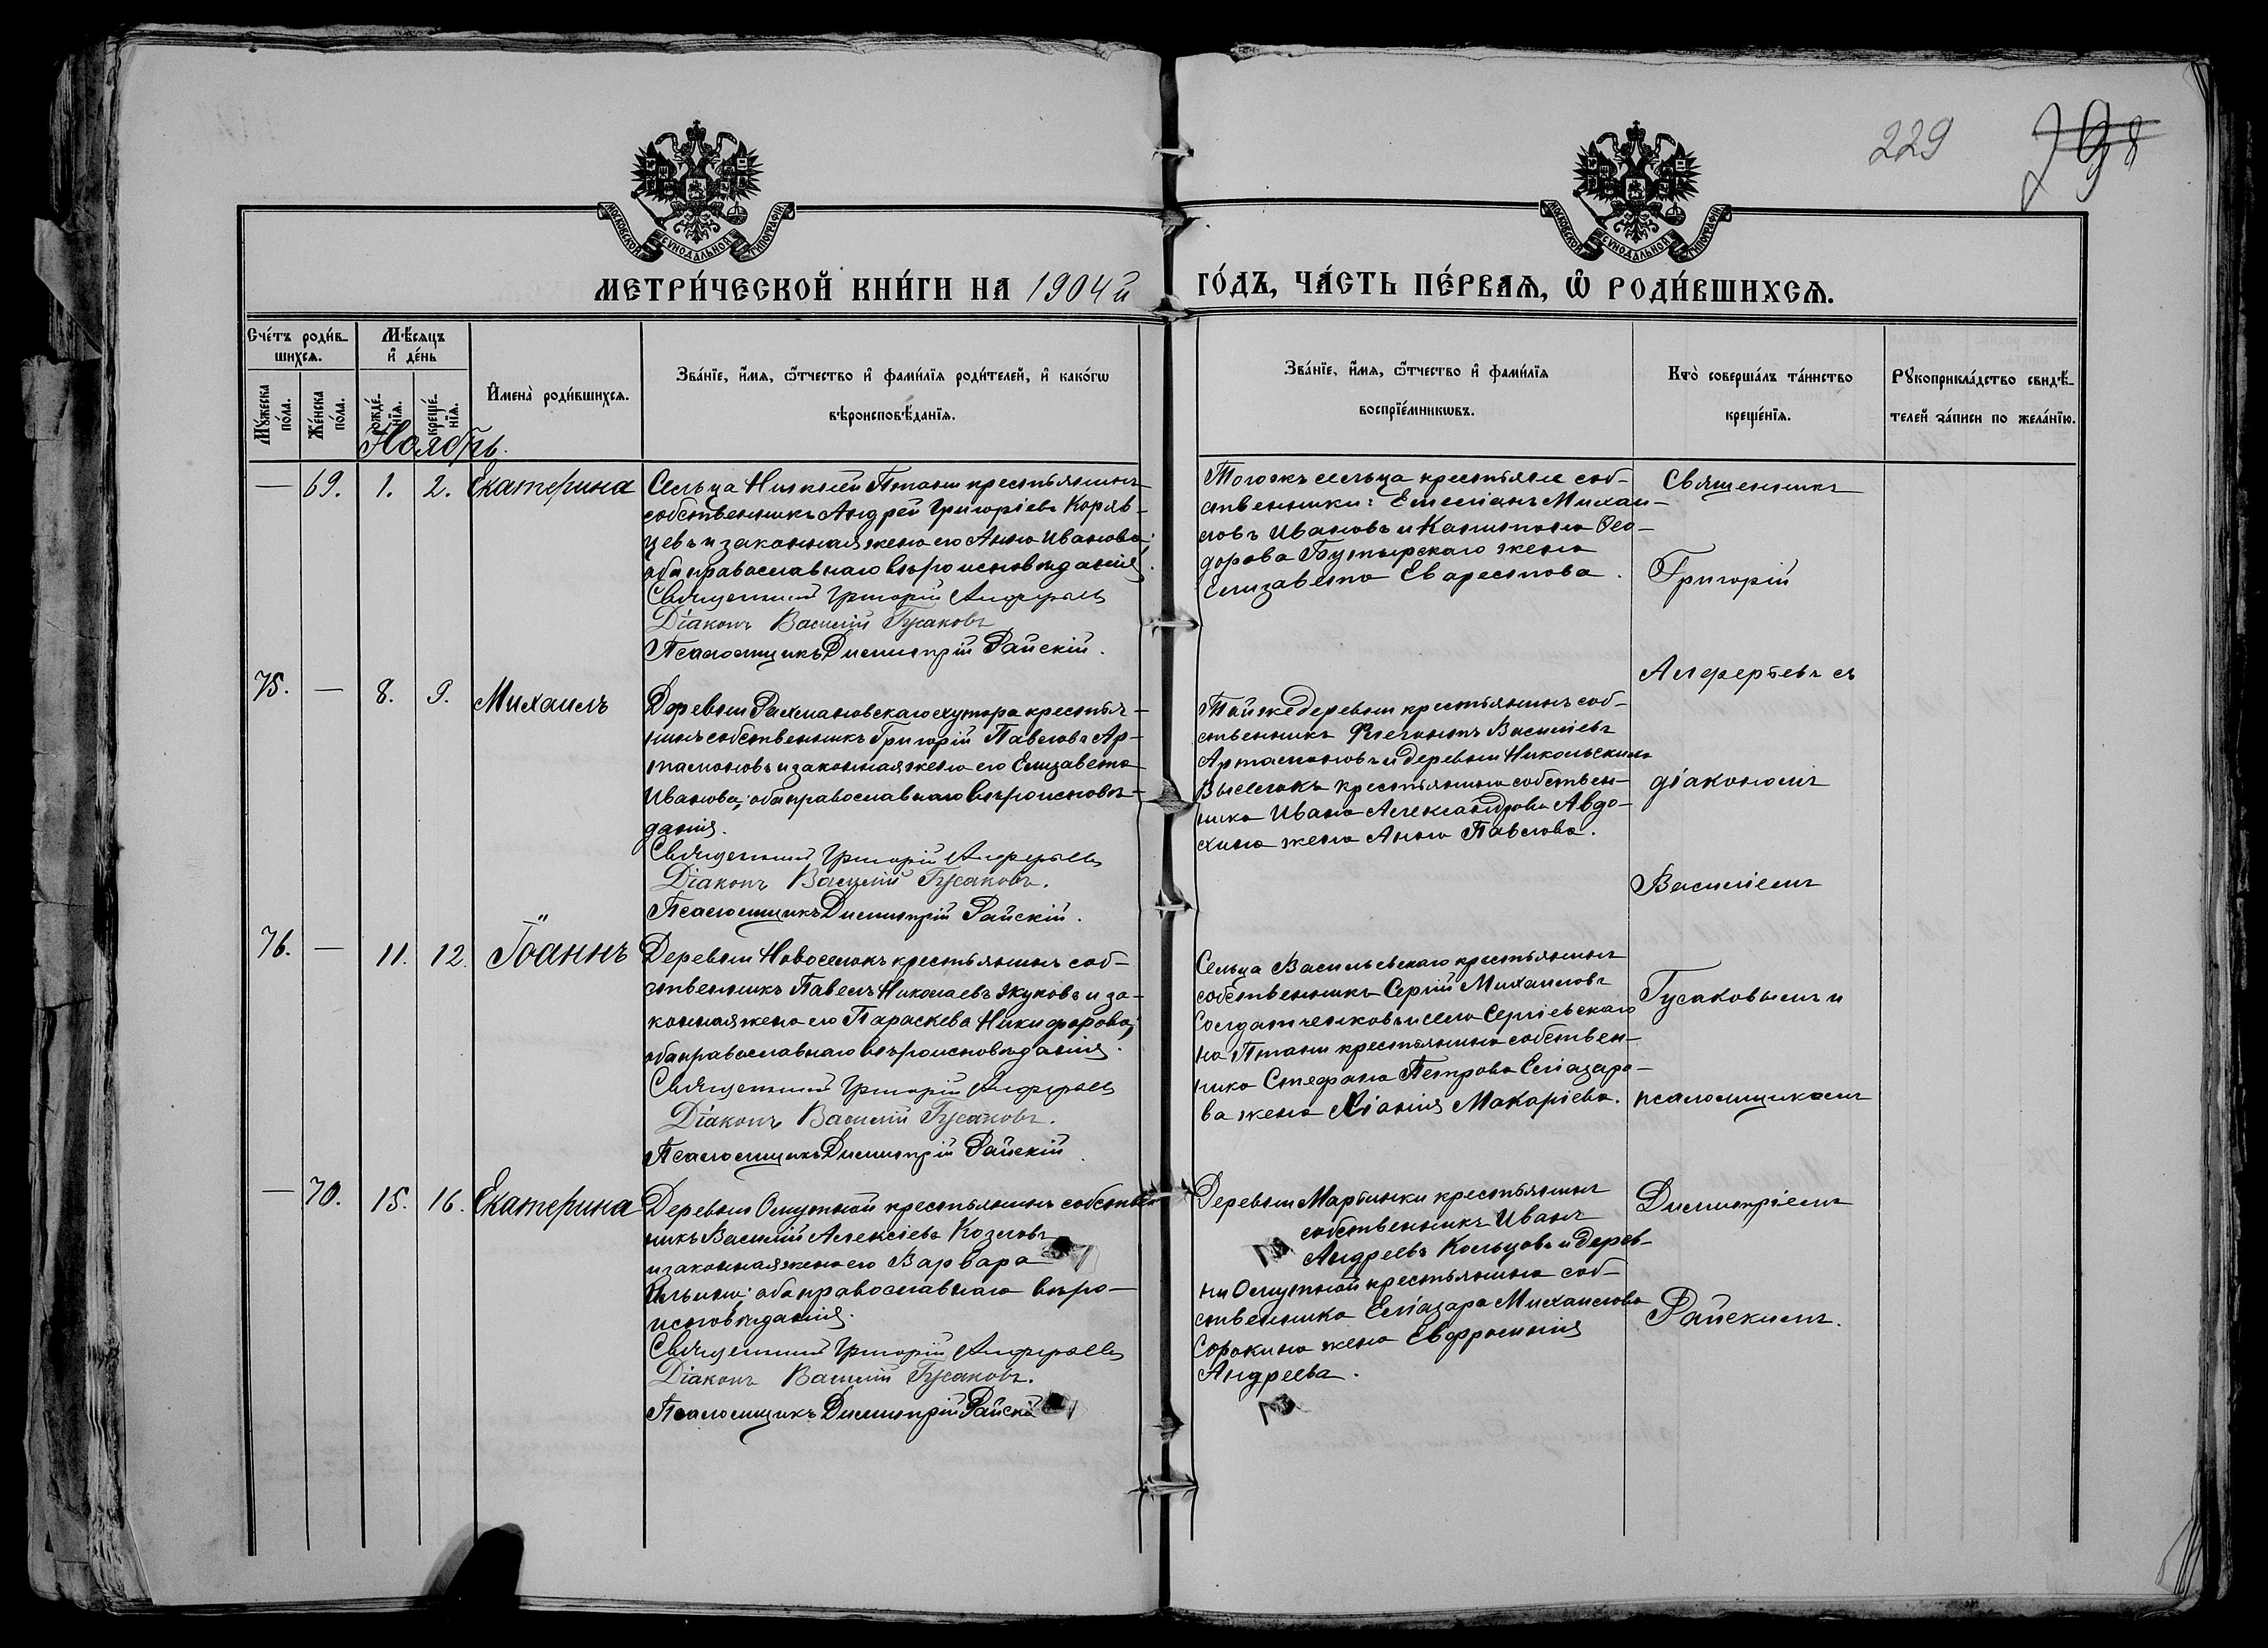 229
298
МОСКОВСКОЙ СѴНОДАЛЬНОЙ ТИПОГРАФІИ
МОСКОВСКОЙ СѴНОДАЛЬНОЙ ТИПОГРАФІИ
МЕТРИ́ЧЕСКОЙ КНИ́ГИ НА 1904й ГО́ДЪ, ЧА́СТЬ ПЕ́РВАѦ, Ѡ҆ РОДИ́ВШИХСѦ.
Сче́тъ роди́в-
шихсѧ.
Мꙋ́жеска по́ла.
Же́нска по́ла.
Мѣ́сѧцъ и҆ де́нь
рожде́нїѧ.
креще́нїѧ.
И҆мена̀ роди́вшихсѧ.
Зва́нїе, и҆́мѧ, ѻ҆́тчество и҆ фами́лїѧ роди́телей, и҆ како́гѡ
вѣроисповѣ́данїѧ.
Зва́нїе, и҆́мѧ, ѻ҆́тчество и҆ фами́лїѧ
воспрїе́мникѡвъ.
Кто̀ соверша́лъ та́инство
креще́нїѧ.
Рꙋкоприкла́дство свидѣ́-
телей за́писи по жела́нїю.
Ноябрь.
— 69. 1. 2. Екатерина
Сельца Нижней Птани крестьянинъ
собственникъ Андрей Григоріевъ Коряв-
цевъ и законная жена его Анна Иванова;
оба православнаго вѣроисповѣданія.
Священникъ Григорій Алферьевъ
Діаконъ Василій Гусаковъ
Псаломщикъ Димитрій Райскій.
Тогожъ сельца крестьяне соб-
ственники: Емеліанъ Михаи-
ловъ Ивановъ и Капитона Ѳео-
дорова Бутырскаго жена
Елизавета Еварестова.
75. — 8. 9. Михаилъ
Деревни Рахмановскаго хутора крестья-
нинъ собственникъ Григорій Павловъ Ар-
тамоновъ и законная жена его Елизавета
Иванова; оба православнаго вѣроисповѣ-
данія.
Священникъ Григорій Алферьевъ
Діаконъ Василій Гусаковъ.
Псаломщикъ Димитрій Райскій.
Тойже деревни крестьянинъ соб-
ственникъ Флегонтъ Василіевъ
Артамоновъ и деревни Никольскихъ
Выселокъ крестьянина собствен-
ника Ивана Александрова Авдо-
хина жена Анна Павлова.
76. — 11. 12. Іоаннъ
Деревни Новоселокъ крестьянинъ соб-
ственникъ Павелъ Николаевъ Жуковъ и за-
конная жена его Параскева Никифорова;
оба православнаго вѣроисповѣданія.
Священникъ Григорій Алферьевъ
Діаконъ Василій Гусаковъ.
Псаломщикъ Димитрій Райскій
Сельца Васильевскаго крестьянинъ
собственникъ Сергій Михаиловъ
Солдатченковъ и села Сергіевскаго
на Птани крестьянина собствен-
ника Стефана Петрова Еліазаро-
ва жена Ксанія Макаріева.
— 70. 15. 16. Екатерина
Деревни Омутной крестьянинъ собствен
никъ Василій Алексіевъ Козловъ
и законная жена его Варвара
Ильина; оба православнаго вѣро-
исповѣданія.
Священникъ Григорій Алферьевъ
Діаконъ Василій Гусаковъ.
Псаломщикъ Димитрій Райскій
Деревни Мартинки крестьянинъ
собственникъ Иванъ
Андреевъ Кольцовъ и дерев-
ни Омутной крестьянина соб-
ственника Еліазара Михаилова
Сорокина жена Евфросинія
Андреева.
Священникъ
Григорій
Алферьевъ съ
діакономъ
Василіемъ
Гусаковымъ и
псаломщикомъ
Димитріемъ
Райскимъ.